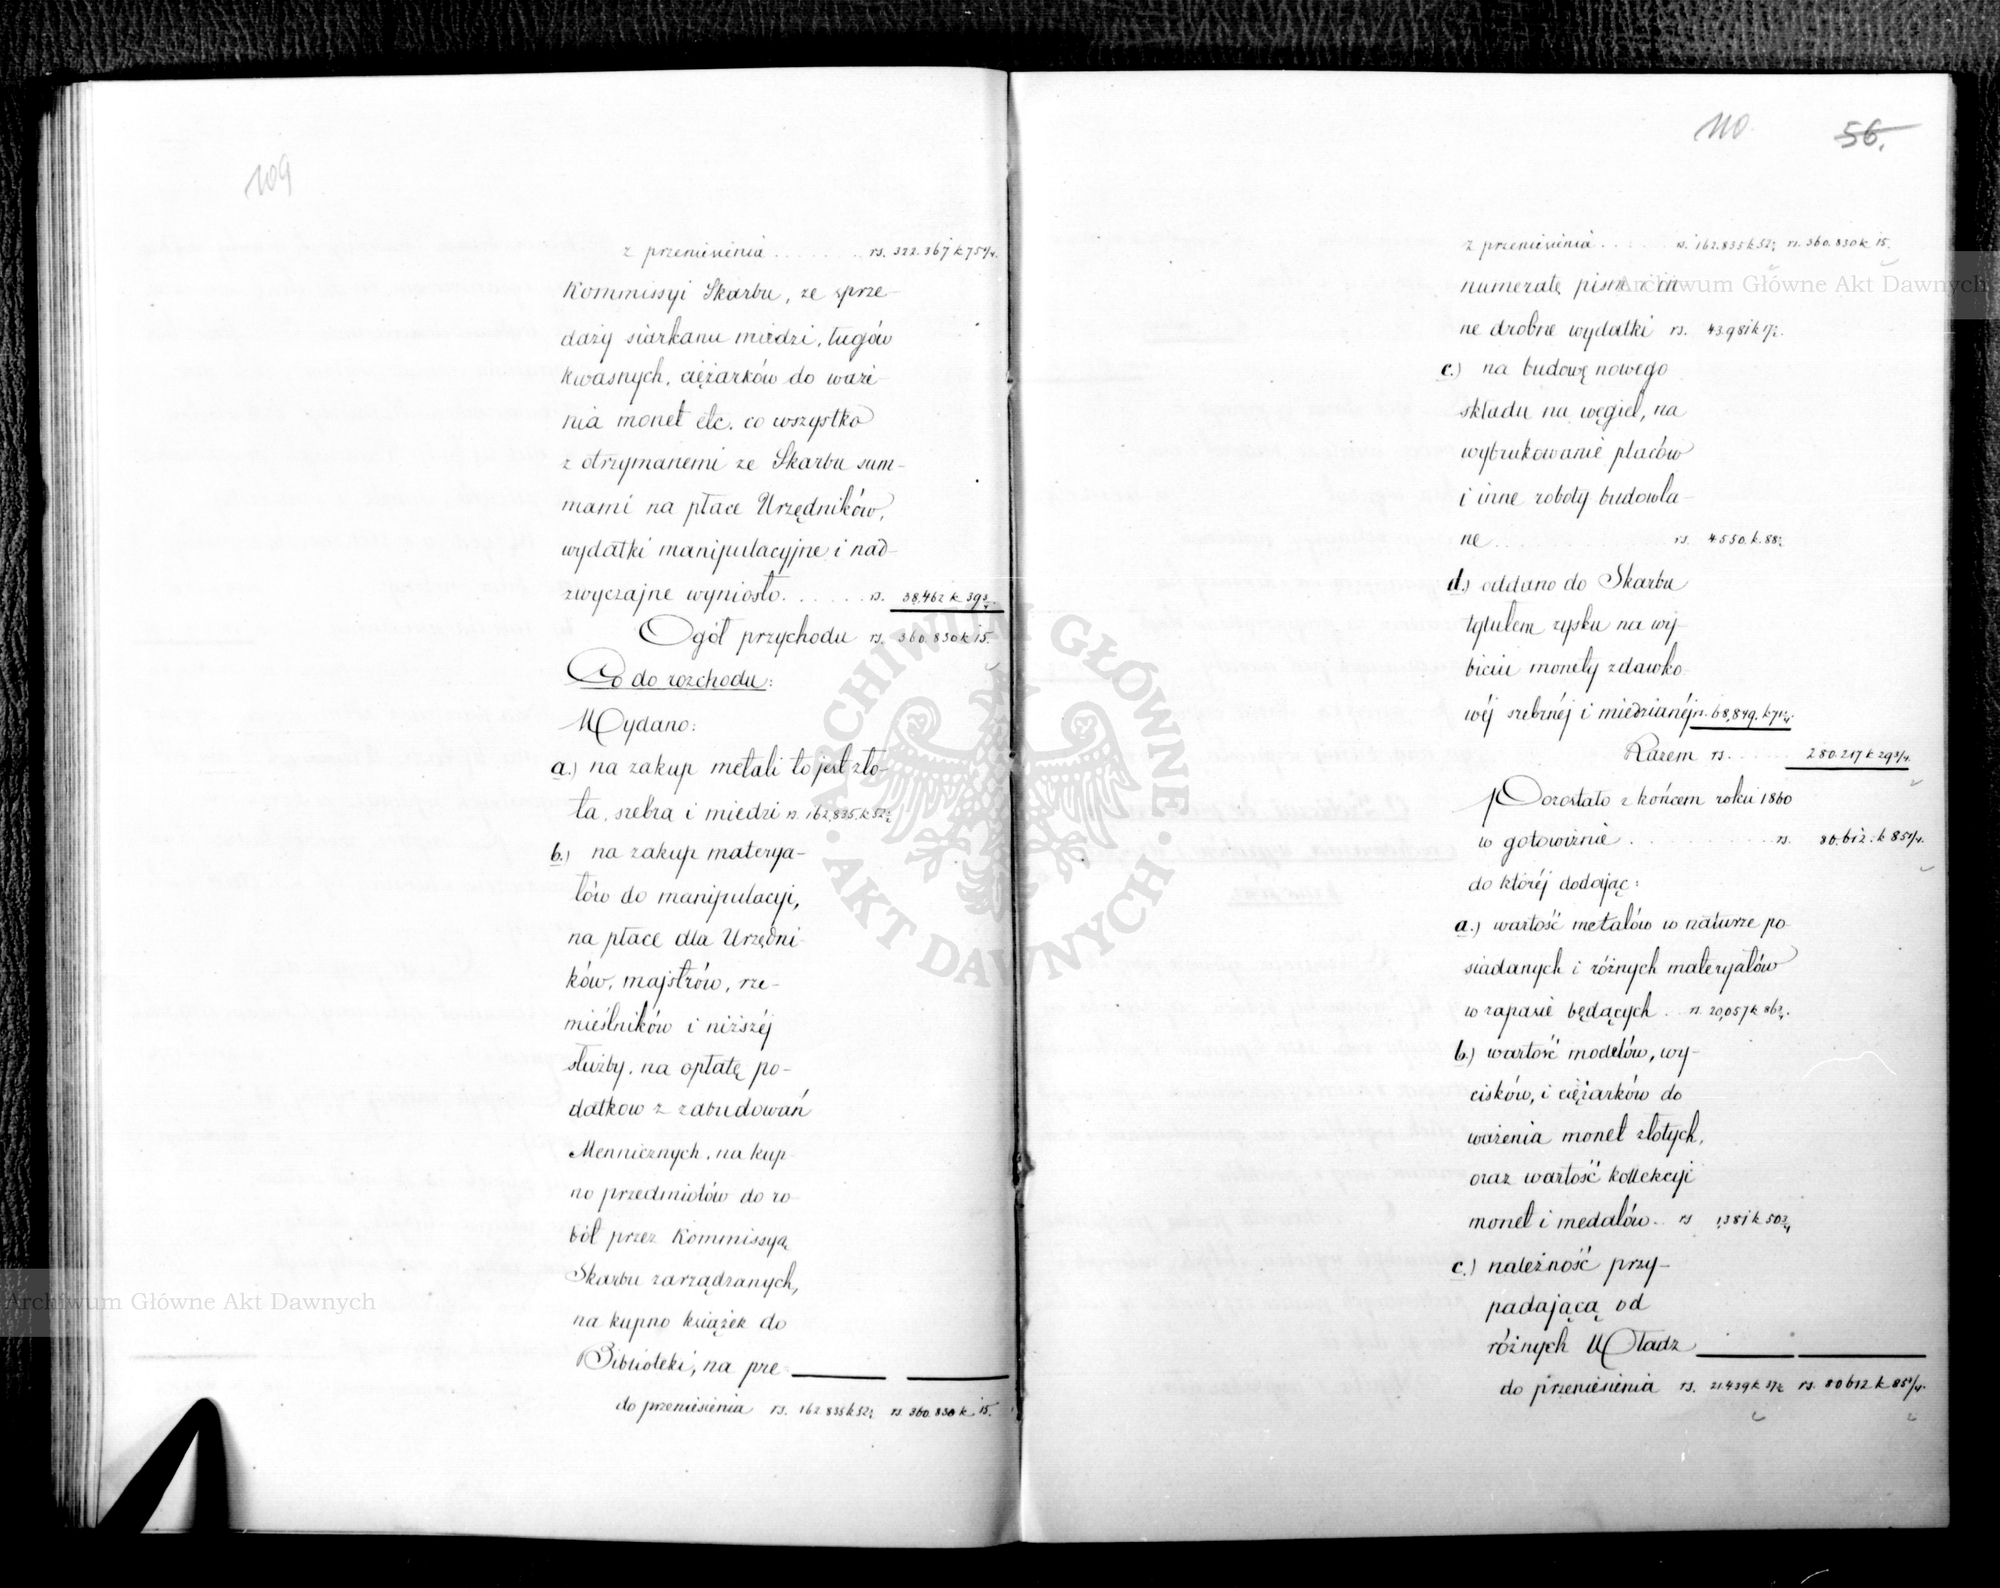 109
z przeniesienia . . . . . . . rs. 322.367 k 75 1/4.
Kommissyi Skarbu, ze sprze-
daży siarkanu miedzi, ługów
kwasnych, ciężarków do waże-
nia monet etc. co wszystko
z otrzymanemi ze Skarbu sum-
mami na płace Urzędników,
wydatki manipulacyjne i nad-
zwyczajne wyniosło . . . . . rs. 38,462 k 39 3/4.
Ogół przychodu rs. 360.830 k 15.
Co do rozchodu:
Wydano:
a.) na zakup metali to jest zło-
ta, srebra i miedzi rs. 162,835. k. 52 1/2
b.) na zakup materya-
łów do manipulacyi,
na płace dla Urzędni-
ków, majstrów, rze-
mieślników i niższéj
służby, na opłatę po-
datkow z zabudowań
Mennicznych, na kup-
no przedmiotów do ro-
bót przez Kommissyą
Skarbu zarządzanych,
na kupno książek do
Biblioteki, na pre-
do przeniesienia rs. 162.835 k 52 1/2 rs. 360.830 k 15.
110. 56.
z przeniesienia . . . . . rs. 162.835 k 52 1/2 rs. 360.830 k 15.
numeratę pism i in
ne drobne wydatki rs. 43.981 k 17 1/2.
c.) na budowę nowego
składu na węgiel, na
wybrukowanie placów
i inne roboty budowla-
ne . . . . . . . . . rs. 4.550. k. 88 1/2
d.) oddano do Skarbu
tytułem zysku na wy-
biciu monety zdawko-
wéj srebrnéj i miedzianéj rs. 68,849. k 71 1/4.
Razem rs. . . . . . 280.217 k 29 3/4.
Pozostało z końcem roku 1860
w gotowiźnie . . . . . . . . . rs. 80.612. k 85 1/4.
do któréj dodając:
a.) wartość metalów w naturze po-
siadanych i różnych materyałów
w zapasie będących . . rs. 20,057 k 86 3/4.
b.) wartość modelów, wy-
cisków, i ciężarków do
ważenia monet złotych,
oraz wartość kollekcyi
monet i medalów . . rs 1,381 k 50 3/4
c.) należność przy-
padającą od
różnych Władz
do przeniesienia rs. 21.439 k 37 1/2 rs. 80612 k 85 1/4.
Archiwum Główne Akt Dawnych
Archiwum Główne Akt Dawnych
ARCHIWUM GŁÓWNE
AKT DAWNYCH